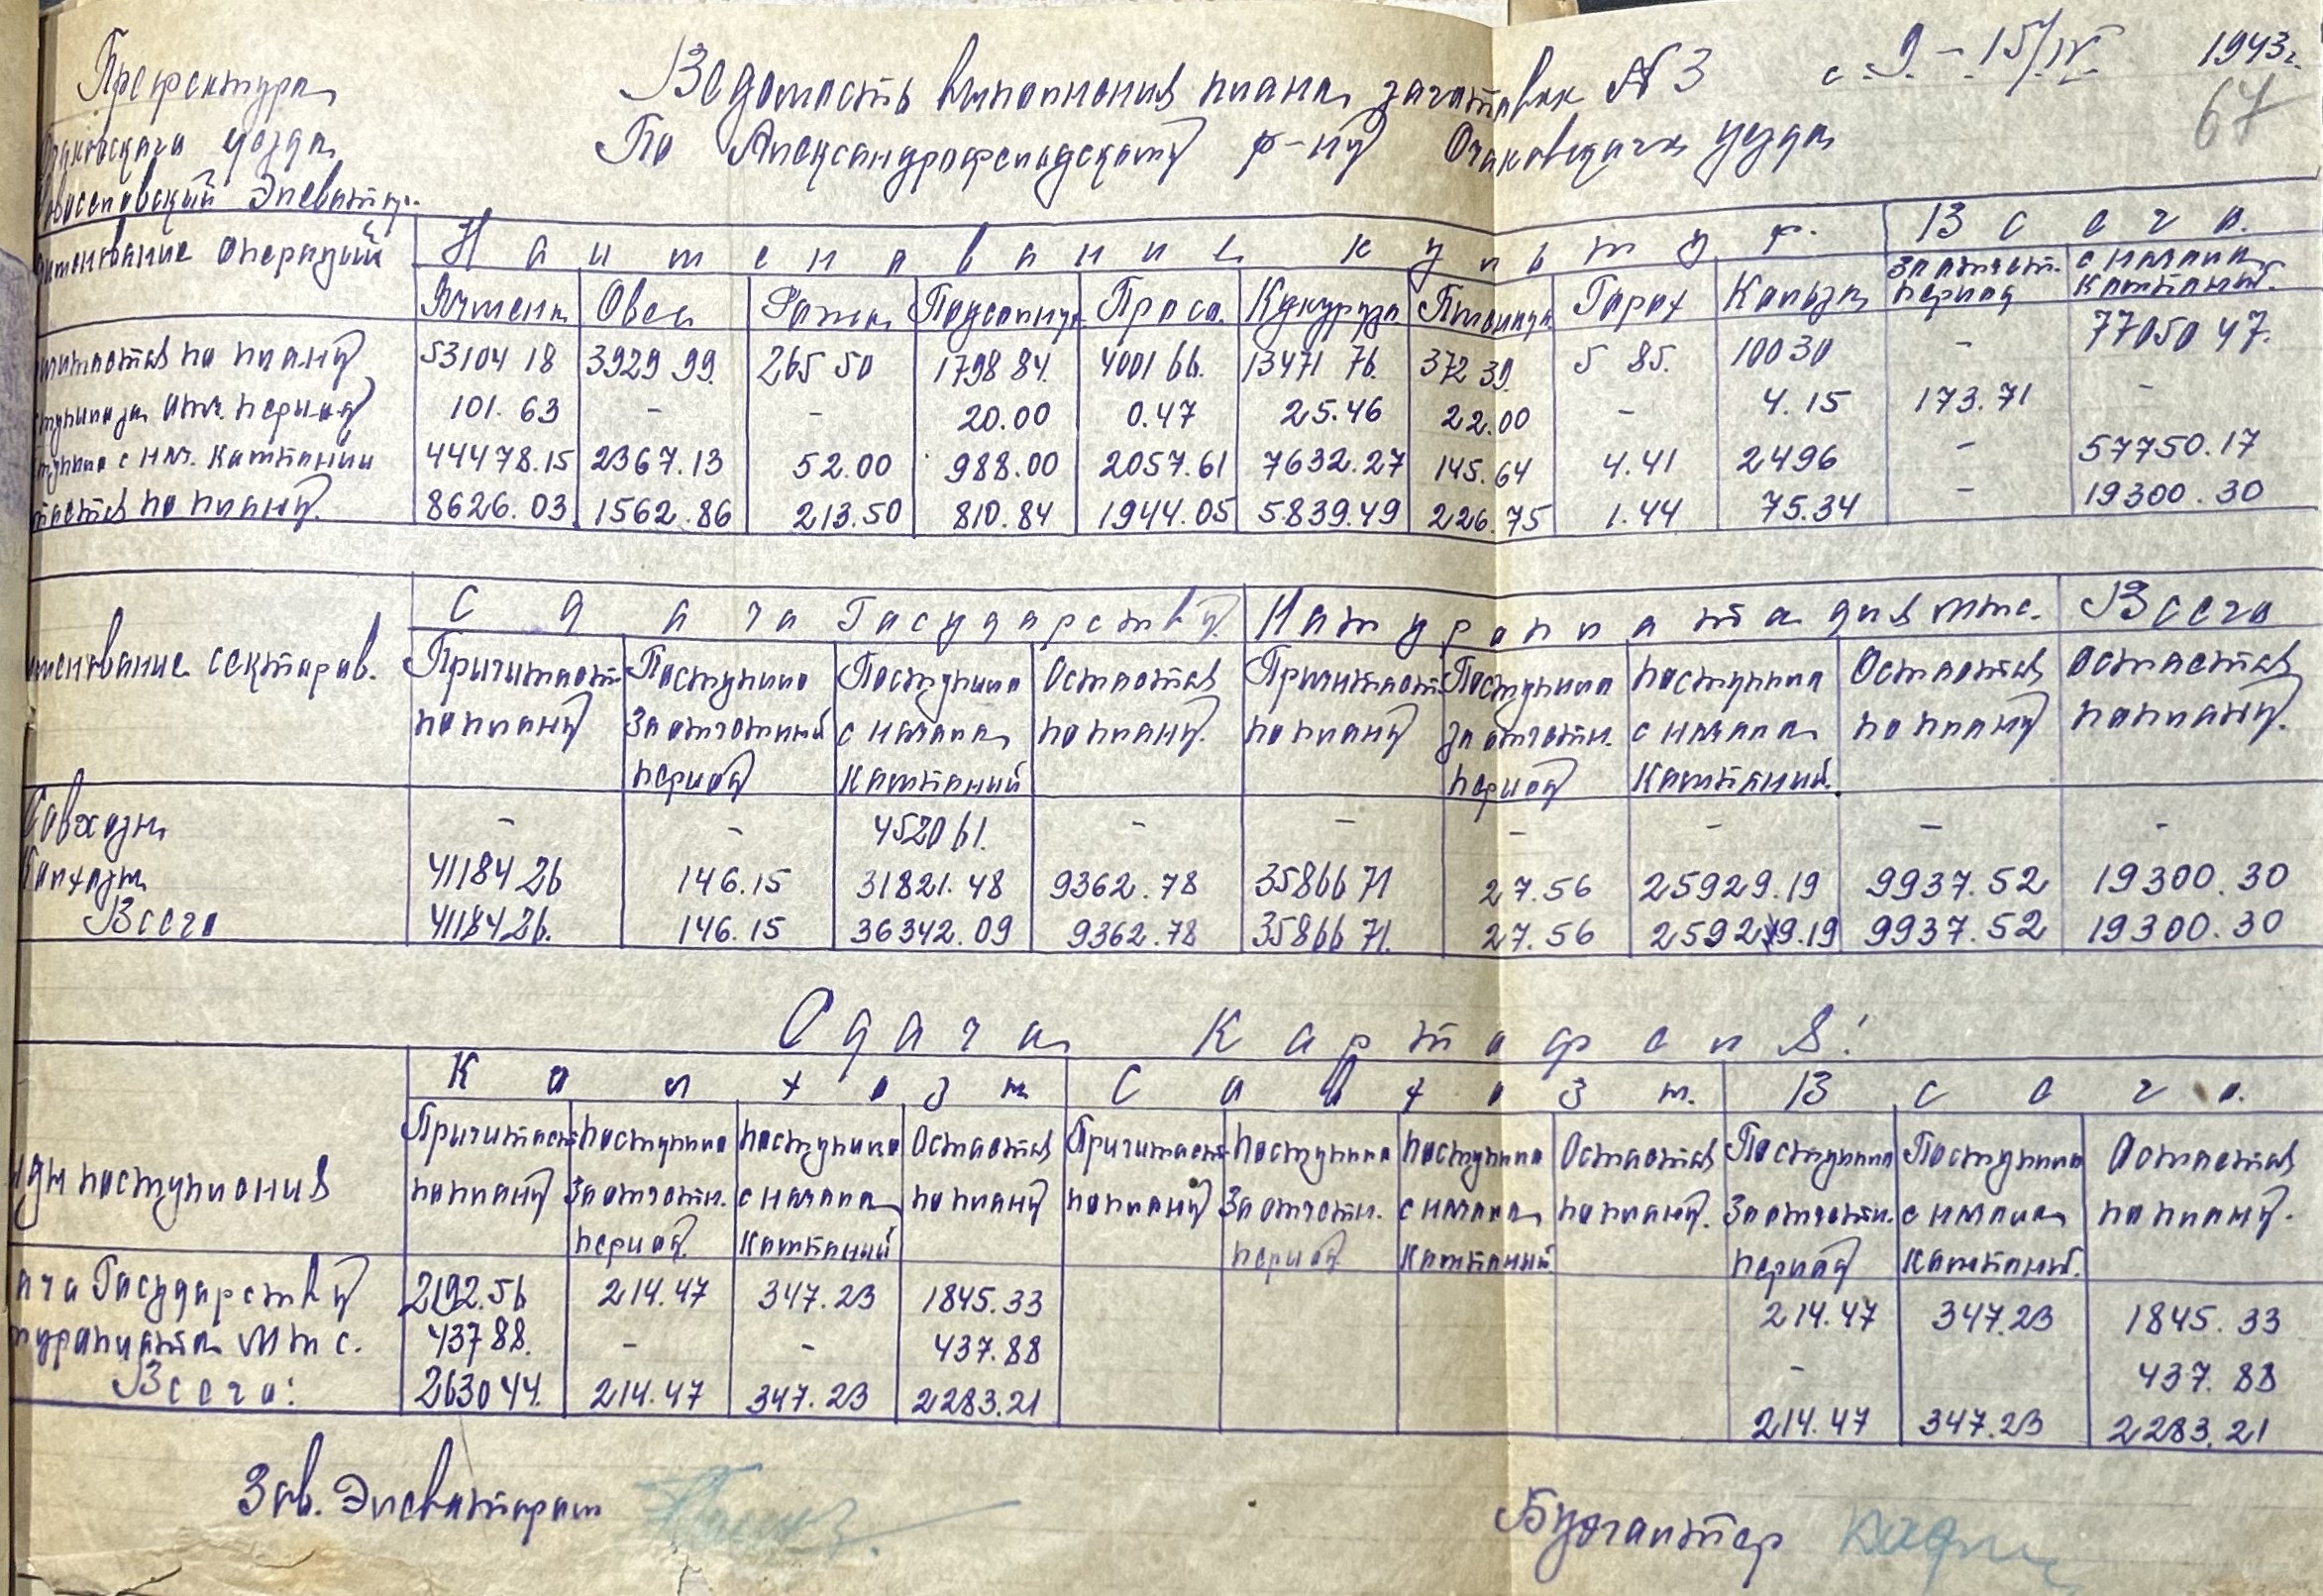 Префектура
Очаковского уезда
Новоселовский Элеватор.
Ведомость выполнения плана заготовок № 3 с 9 – 15/IV 1943г.
67
По Александрофельдскому р-ну Очаковского уезда
именование операций Наименование культур. Всего.
Ячмень Овес Рожь Подсолнух Просо Кукуруза Пшеница Горох Кользы За отчетн. период с начала кампаний.
читается по плану 53104 18 3929 99. 265 50 1798 84. 4001 66. 13471 76. 372 39. 5 85. 100 30 - 77050 47.
ступило за отч. период 101.63 - - 20.00 0.47 25.46 22.00 - 4.15 173.71 -
ступило с нач. кампании 44478.15 2367.13 52.00 988.00 2057.61 7632.27 145.64 4.41 24 96 - 57750.17
тается по плану. 8626.03 1562.86 213.50 810.84 1944.05 5839.49 226.75 1.44 75.34 - 19300.30
именование секторов. Сдача Государству. Натуроплата для мтс. Всего
Причитает. по плану Поступило за отчетный период Поступило с начала кампаний Остается по плану. Причитает. по плану Поступило за отчетн. период поступило с начала кампаний. Остается по плану Остается по плану.
Совхозы - - 4520 61. - - - - - -
Колхозы 41184 26 146.15 31821.48 9362.78 35866 71 27.56 25929.19 9937.52 19300.30
Всего 41184 26. 146.15 36342.09 9362.78 35866 71. 27.56 25929.19 9937.52 19300.30
Сдача Картофеля!
иды поступления Колхозы Совхозы. Всего.
Причитает. по плану поступило за отчетн. период. поступило с начала кампаний Остается по плану Причитает. по плану поступило за отчетн. период поступило с начала кампаний Остается по плану. Поступило за отчетн. период Поступило с начала кампаний. Остается по плану.
ача Государству 2192.56 214.47 347.23 1845.33 214.47 347.23 1845.33
туроплата мтс. 437 88. - - 437.88 - 437.88
Всего: 2630 44. 214.47 347.23 2283.21 214.47 347.23 2283.21
Зав. Элеватором
Бухгалтер